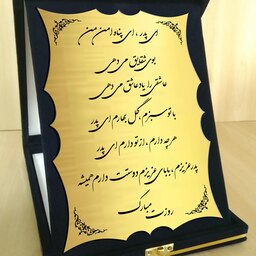 ای پدر ، ای پناه امن من
بوی شقایق می دهی
عاشقی را یاد عاشق می دهی
با تو سبزم ، گل بهارم ای پدر
هر چه دارم ، از تو دارم ای پدر
پدر عزیزم ، بابای عزیزم دوستت دارم همیشه
روزت مبارک